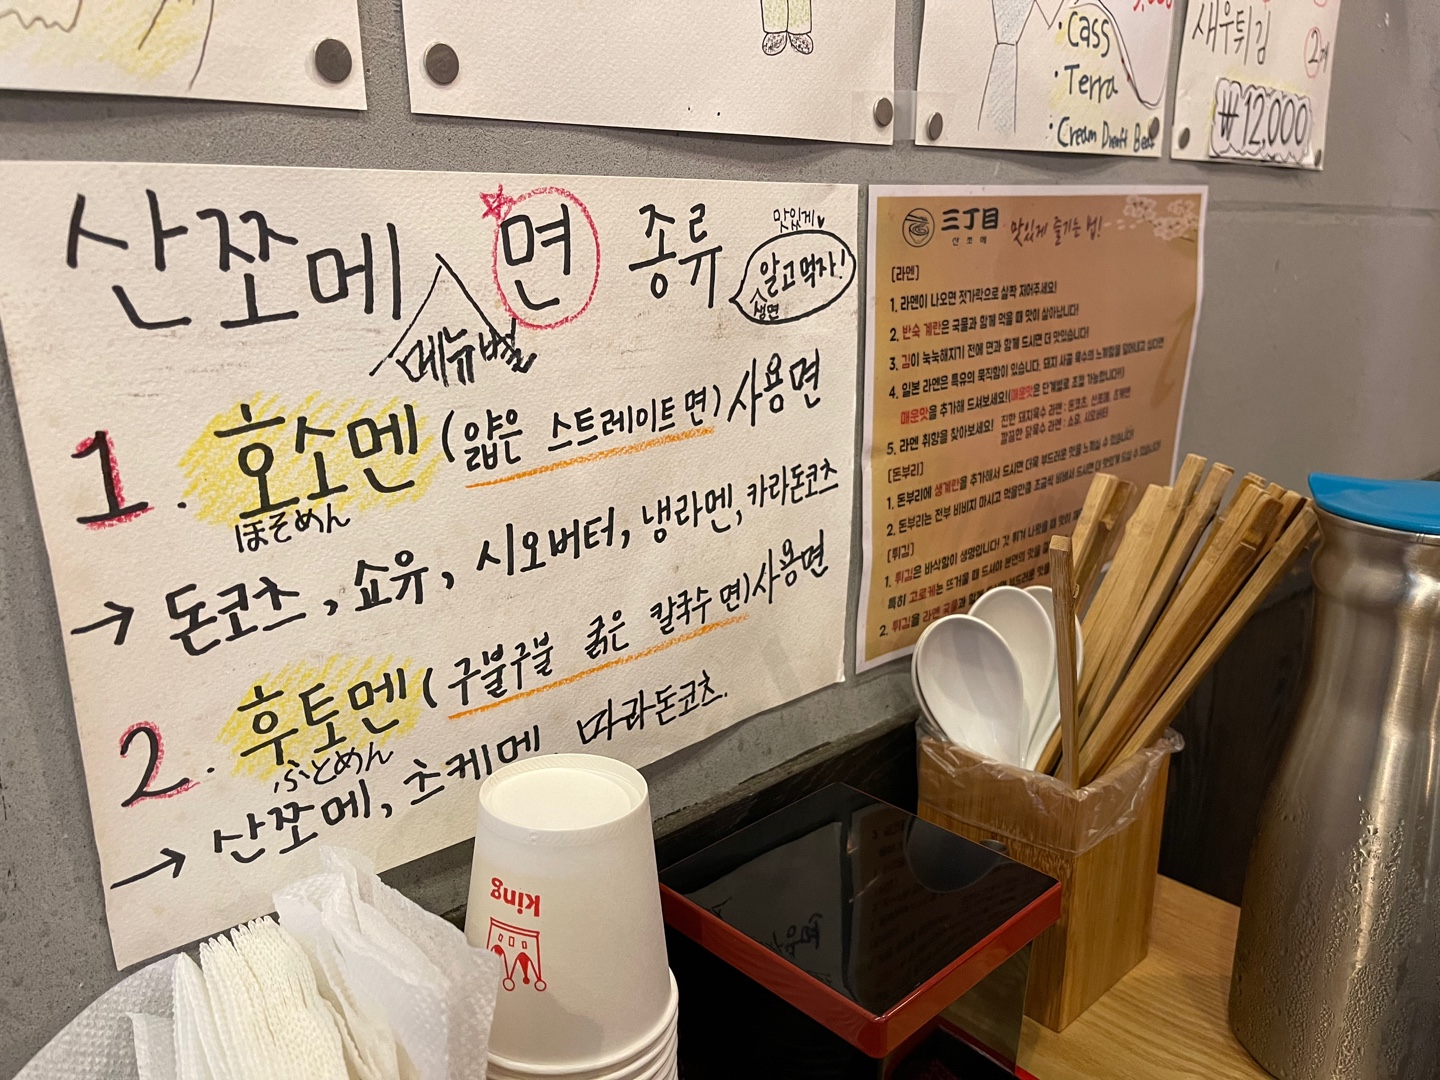 Cass
Terra
Cream Draft Beer
새우튀김
2개
₩12,000
산쪼메 면 종류
메뉴별
맛있게
알고먹자!
생면
1. 호소멘 (얇은 스트레이트면) 사용면
ほそめん
→ 돈코츠, 쇼유, 시오버터, 냉라멘, 카라돈코츠
2. 후토멘 (구불구불 굵은 칼국수 면) 사용면
ふとめん
→ 산쪼메, 츠케메, 마라돈코츠.
三丁目
산쪼메
맛있게 즐기는 법!
[라멘]
1. 라멘이 나오면 젓가락으로 살짝 저어주세요!
2. 반숙 계란은 국물과 함께 먹을 때 맛이 살아납니다!
3. 김이 눅눅해지기 전에 면과 함께 드시면 더 맛있습니다!
4. 일본 라멘은 특유의 묵직함이 있습니다. 돼지 사골 육수의 느끼함을 덜어내고 싶다면
매운맛을 추가해 드셔보세요!(매운맛은 단계별로 조절 가능합니다!)
5. 라멘 취향을 찾아보세요! 진한 돼지육수 라멘 : 돈코츠, 산쪼메, 츠케멘
깔끔한 닭육수 라멘 : 쇼유, 시오버터
[돈부리]
1. 돈부리에 생계란을 추가해서 드시면 더욱 부드러운 맛을 느끼실 수 있습니다!
2. 돈부리는 전부 비비지 마시고 먹을만큼 조금씩 비벼서 드시면 더 맛있게 드실 수 있습니다!
[튀김]
1. 튀김은 바삭함이 생명입니다! 갓 튀겨 나왔을 때 맛이
특히 고로케는 뜨거울 때 드셔야 본연의 맛을
2. 튀김을 라멘 국물과 함께 부드러운 맛을
King